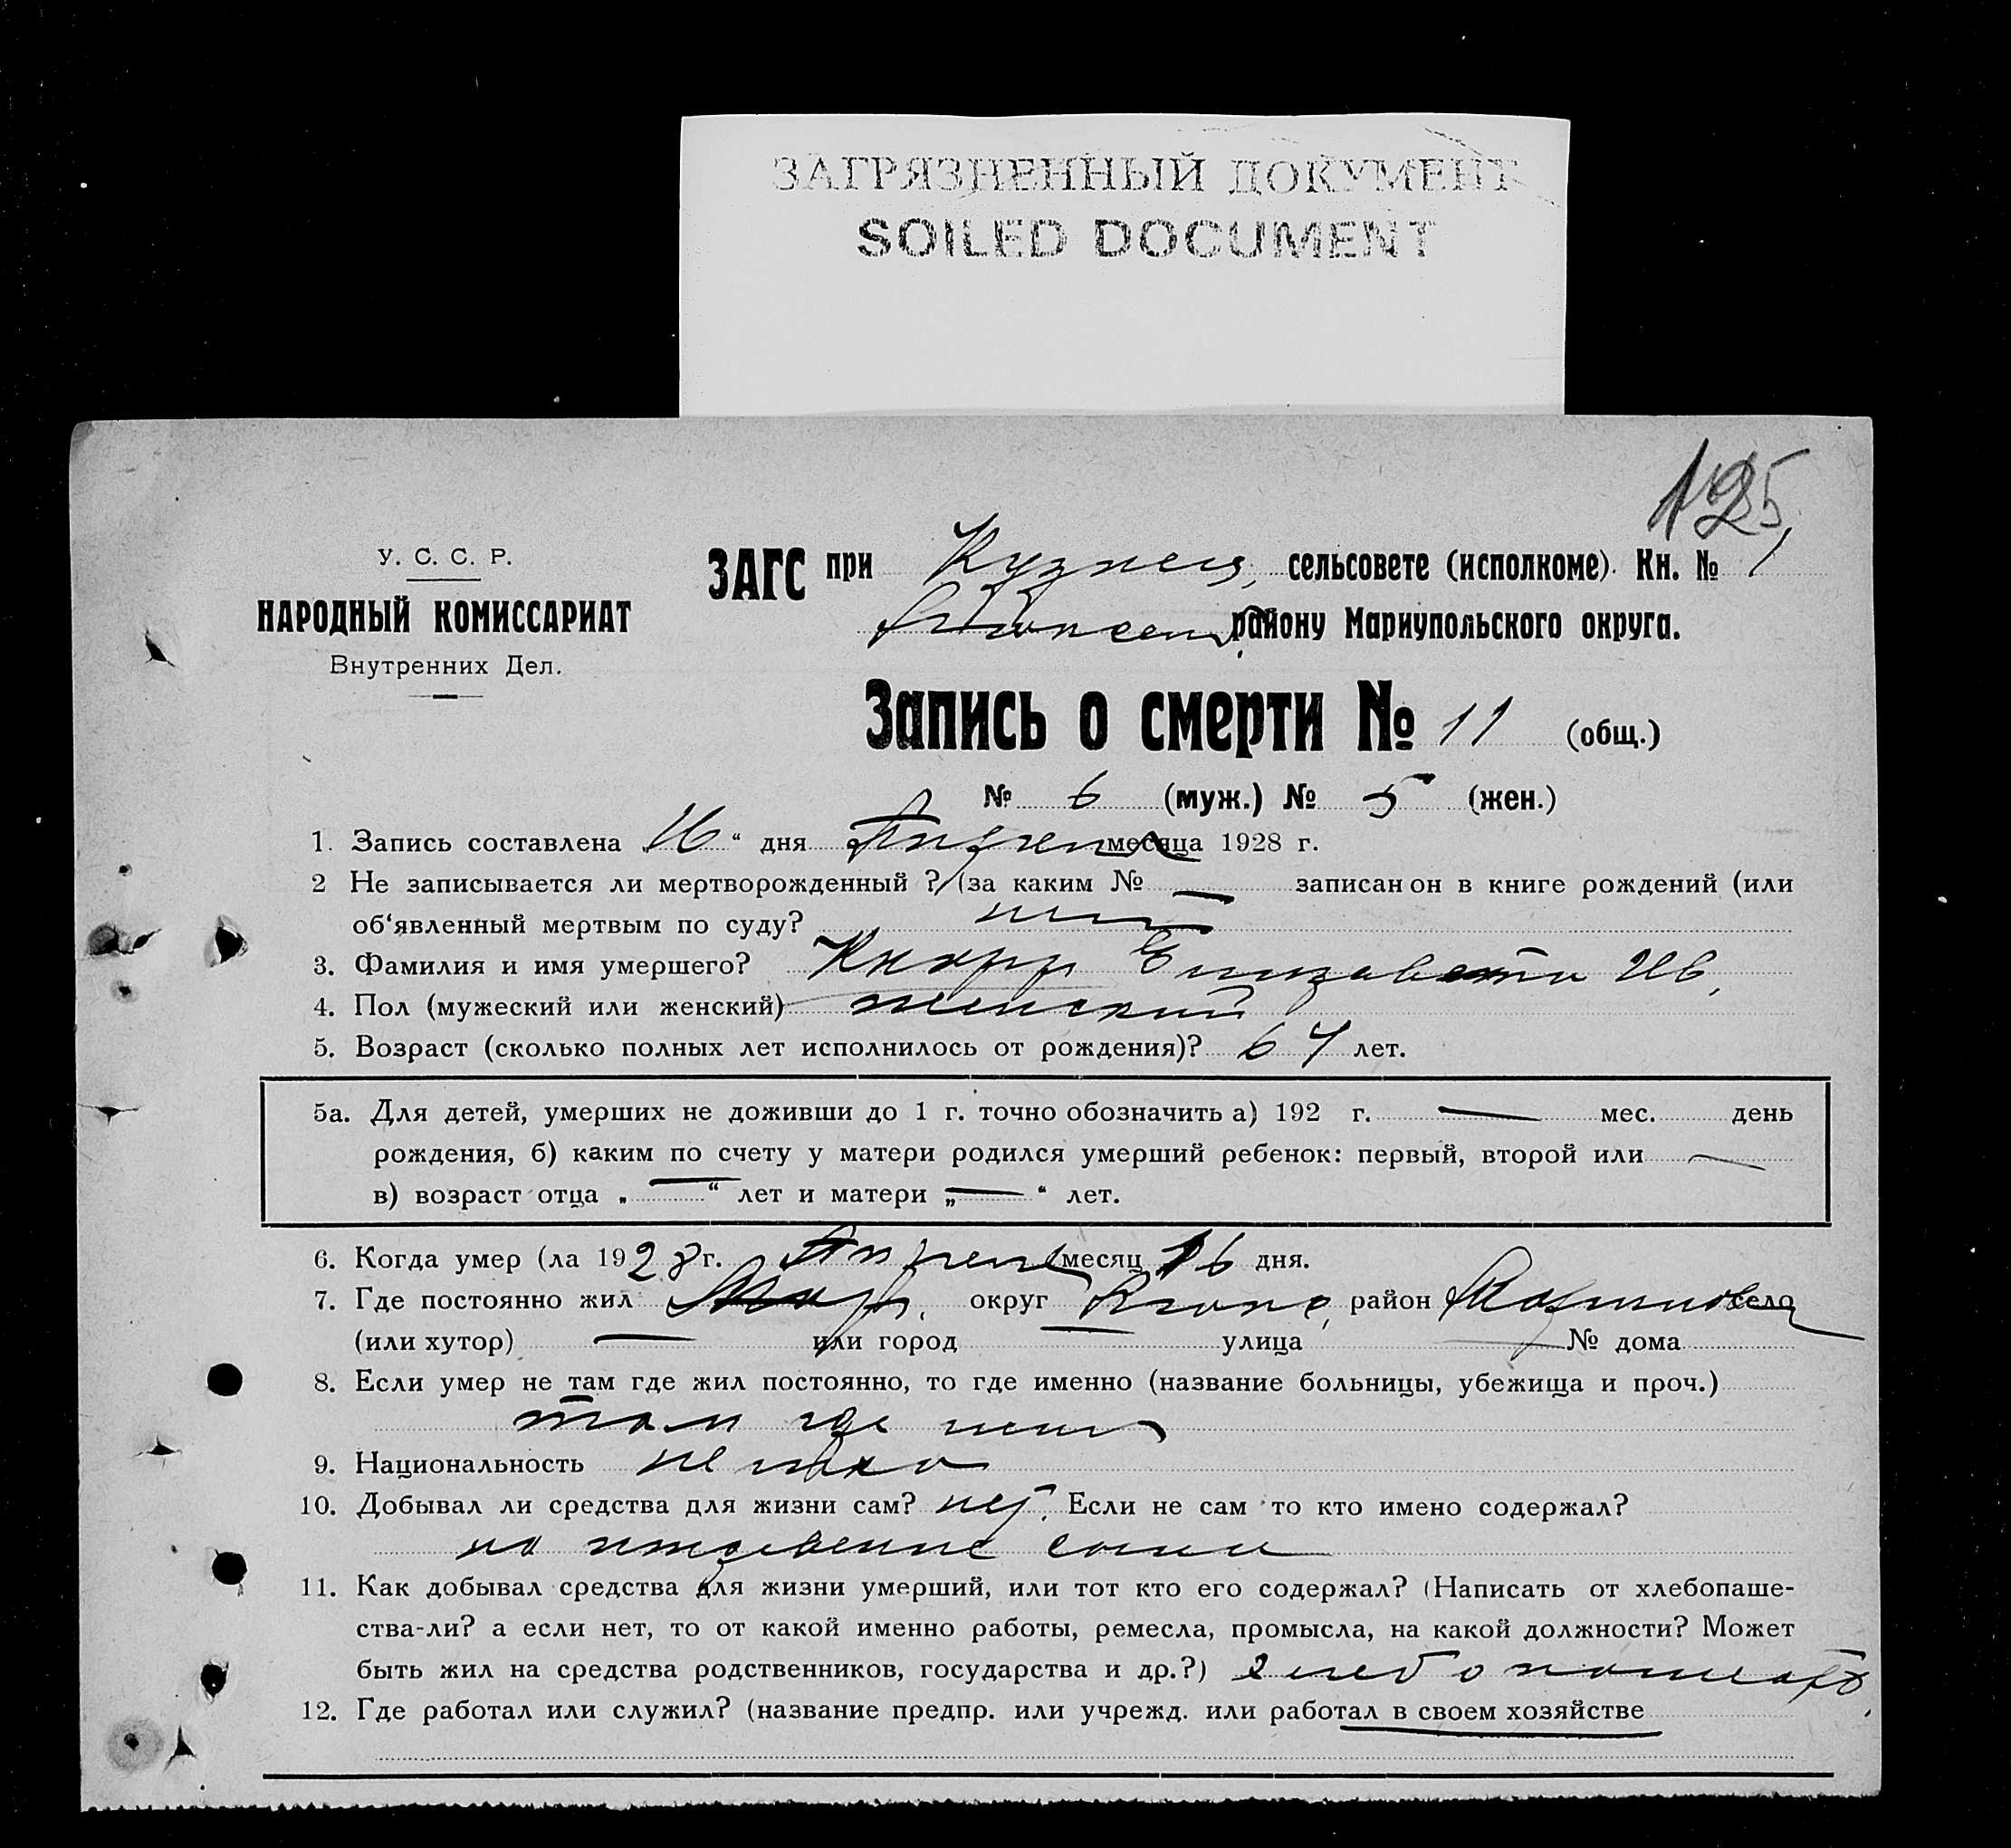 ЗАГРЯЗНЕННЫЙ ДОКУМЕНТ
SOILED DOCUMENT
125
У. С. С. Р.
НАРОДНЫЙ КОМИССАРИАТ
Внутренних Дел.
ЗАГС при Кузнец. сельсовете (исполкоме). Кн. № 1
району Мариупольского округа.
Запись о смерти № 11 (общ.)
№ 6 (муж.) № 5 (жен.)
1. Запись составлена „16“ дня Апреля месяца 1928 г.
2 Не записывается ли мертворожденный ? (за каким № — записан он в книге рождений (или
об‘явленный мертвым по суду? нет
3. Фамилия и имя умершего? Кнорр Елизавета Ив.
4. Пол (мужеский или женский) женский
5. Возраст (сколько полных лет исполнилось от рождения)? 64 лет.
5а. Для детей, умерших не доживши до 1 г. точно обозначить а) 192 г. — мес. день
рождения, б) каким по счету у матери родился умерший ребенок: первый, второй или —
в) возраст отца „ — “ лет и матери „ — “ лет.
6. Когда умер (ла 1928 г. Апреля месяц 16 дня.
7. Где постоянно жил Мар. округ район село
(или хутор) — или город — улица — № дома
8. Если умер не там где жил постоянно, то где именно (название больницы, убежища и проч.)
там где жил
9. Национальность немка
10. Добывал ли средства для жизни сам? нет. Если не сам то кто имено содержал?
на иждевение сына
11. Как добывал средства для жизни умерший, или тот кто его содержал? (Написать от хлебопаше-
ства-ли? а если нет, то от какой именно работы, ремесла, промысла, на какой должности? Может
быть жил на средства родственников, государства и др.?) хлебопашеств.
12. Где работал или служил? (название предпр. или учрежд. или работал в своем хозяйстве